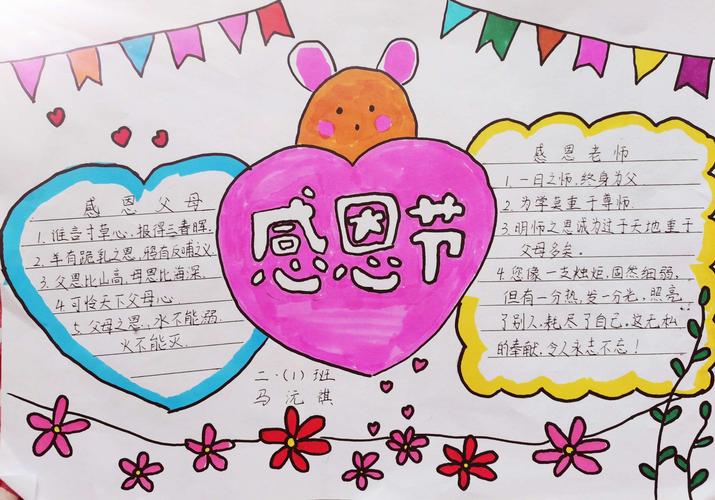 感恩节
感恩父母
1.谁言寸草心,报得三春晖.
2.羊有跪乳之恩,鸦有反哺之义.
3.父恩比山高,母恩比海深.
4.可怜天下父母心.
5.父母之恩,水不能溺,
火不能灭.
感恩老师
1.一日之师,终身为父
2.为学莫重于尊师.
3.明师之恩诚为过于天地,重于
父母多矣。
4.您像一支烛炬,固然细弱,
但有一分热,发一分光,照亮
了别人,耗尽了自己。这无私
的奉献,令人永志不忘!
二.(1)班
马沅祺